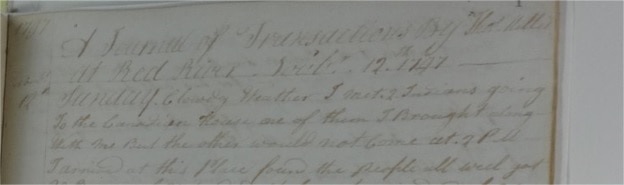 A Journal of Transactions By Thos Miller
at Red River Octbr. 12th 1797
Sunday. Cloudy Weather I met 2 Indians going
To the Canadian House one of them I Brought along
With me But the other would not Come at 2 PM
I arrived at this Place found the People all well